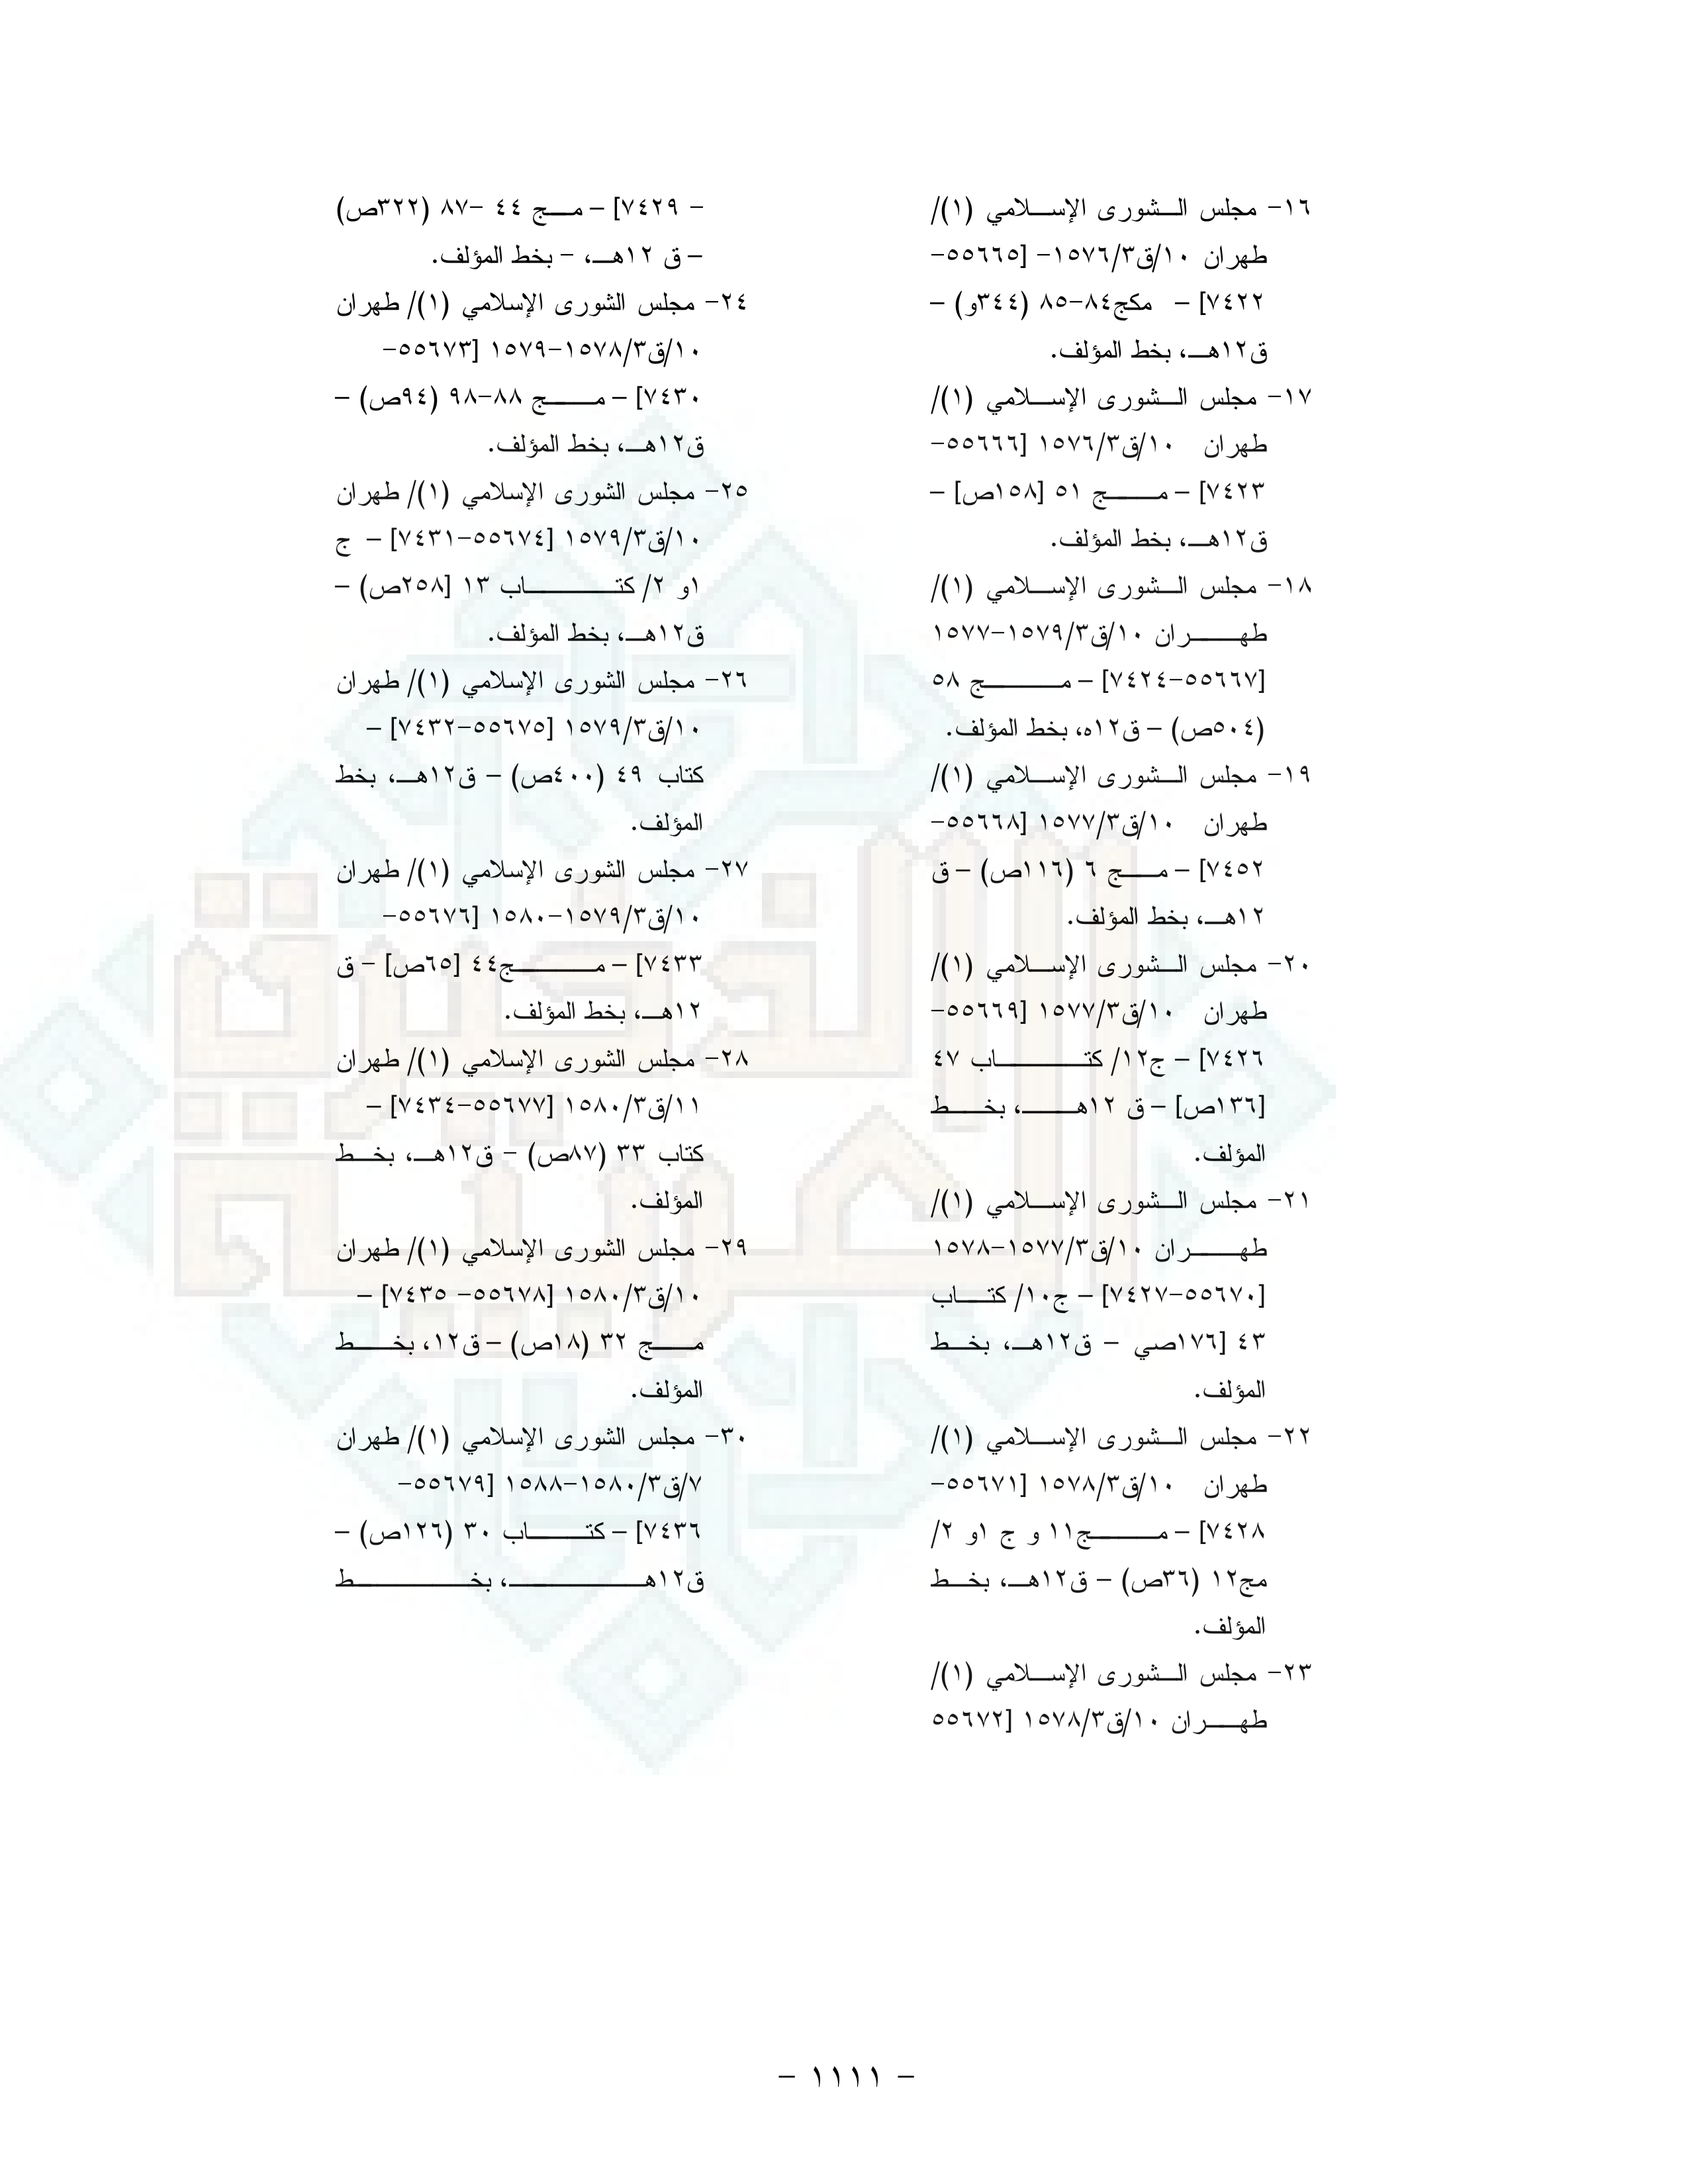 ١٦- مجلس الشورى الإسلامي (١)/
طهران ١٠/ق١٥٧٦/٣- [٥٥٦٦٥-
٧٤٢٢] - مكج٨٤-٨٥ (٣٤٤و) -
ق١٢هـ، بخط المؤلف.
١٧- مجلس الشورى الإسلامي (١)/
طهران ١٠/ق١٥٧٦/٣ [٥٥٦٦٦-
٧٤٢٣] - مج ٥١ [١٥٨ص] -
ق١٢هـ، بخط المؤلف.
١٨- مجلس الشورى الإسلامي (١)/
طهران ١٠/ق١٥٧٩/٣-١٥٧٧
[٥٥٦٦٧-٧٤٢٤] - مج ٥٨
(٥٠٤ص) - ق١٢ه، بخط المؤلف.
١٩- مجلس الشورى الإسلامي (١)/
طهران ١٠/ق١٥٧٧/٣ [٥٥٦٦٨-
٧٤٥٢] - مج ٦ (١١٦ص) - ق
١٢هـ، بخط المؤلف.
٢٠- مجلس الشورى الإسلامي (١)/
طهران ١٠/ق١٥٧٧/٣ [٥٥٦٦٩-
٧٤٢٦] - ج١٢/ كتاب ٤٧
[١٣٦ص] - ق ١٢هـ، بخط
المؤلف.
٢١- مجلس الشورى الإسلامي (١)/
طهران ١٠/ق١٥٧٧/٣-١٥٧٨
[٥٥٦٧٠-٧٤٢٧] - ج١٠/ كتاب
٤٣ [١٧٦صي - ق١٢هـ، بخط
المؤلف.
٢٢- مجلس الشورى الإسلامي (١)/
طهران ١٠/ق١٥٧٨/٣ [٥٥٦٧١-
٧٤٢٨] - مج١١ و ج ١و ٢/
مج١٢ (٣٦ص) - ق١٢هـ، بخط
المؤلف.
٢٣- مجلس الشورى الإسلامي (١)/
طهران ١٠/ق١٥٧٨/٣ [٥٥٦٧٢
- ٧٤٢٩] - مج ٤٤ -٨٧ (٣٢٢ص)
- ق ١٢هـ، - بخط المؤلف.
٢٤- مجلس الشورى الإسلامي (١)/ طهران
١٠/ق١٥٧٨/٣-١٥٧٩ [٥٥٦٧٣-
٧٤٣٠] - مج ٨٨-٩٨ (٩٤ص) -
ق١٢هـ، بخط المؤلف.
٢٥- مجلس الشورى الإسلامي (١)/ طهران
١٠/ق١٥٧٩/٣ [٥٥٦٧٤-٧٤٣١] - ج
١و ٢/ كتاب ١٣ [٢٥٨ص) -
ق١٢هـ، بخط المؤلف.
٢٦- مجلس الشورى الإسلامي (١)/ طهران
١٠/ق١٥٧٩/٣ [٥٥٦٧٥-٧٤٣٢] -
كتاب ٤٩ (٤٠٠ص) - ق١٢هـ، بخط
المؤلف.
٢٧- مجلس الشورى الإسلامي (١)/ طهران
١٠/ق١٥٧٩/٣-١٥٨٠ [٥٥٦٧٦-
٧٤٣٣] - مج٤٤ [٦٥ص] - ق
١٢هـ، بخط المؤلف.
٢٨- مجلس الشورى الإسلامي (١)/ طهران
١١/ق١٥٨٠/٣ [٥٥٦٧٧-٧٤٣٤] -
كتاب ٣٣ (٨٧ص) - ق١٢هـ، بخط
المؤلف.
٢٩- مجلس الشورى الإسلامي (١)/ طهران
١٠/ق١٥٨٠/٣ [٥٥٦٧٨- ٧٤٣٥] -
مج ٣٢ (١٨ص) - ق١٢، بخط
المؤلف.
٣٠- مجلس الشورى الإسلامي (١)/ طهران
٧/ق١٥٨٠/٣-١٥٨٨ [٥٥٦٧٩-
٧٤٣٦] - كتاب ٣٠ (١٢٦ص) -
ق١٢هـ، بخط
- ١١١١ -
الذخيرة
العربية